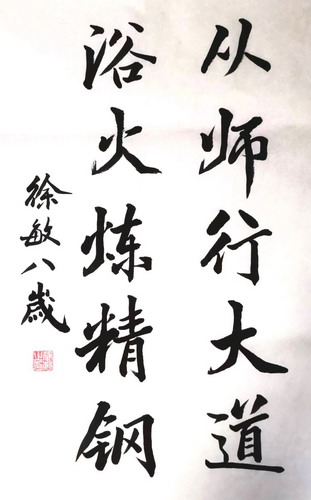 从师行大道
浴火炼精钢
徐敏八岁